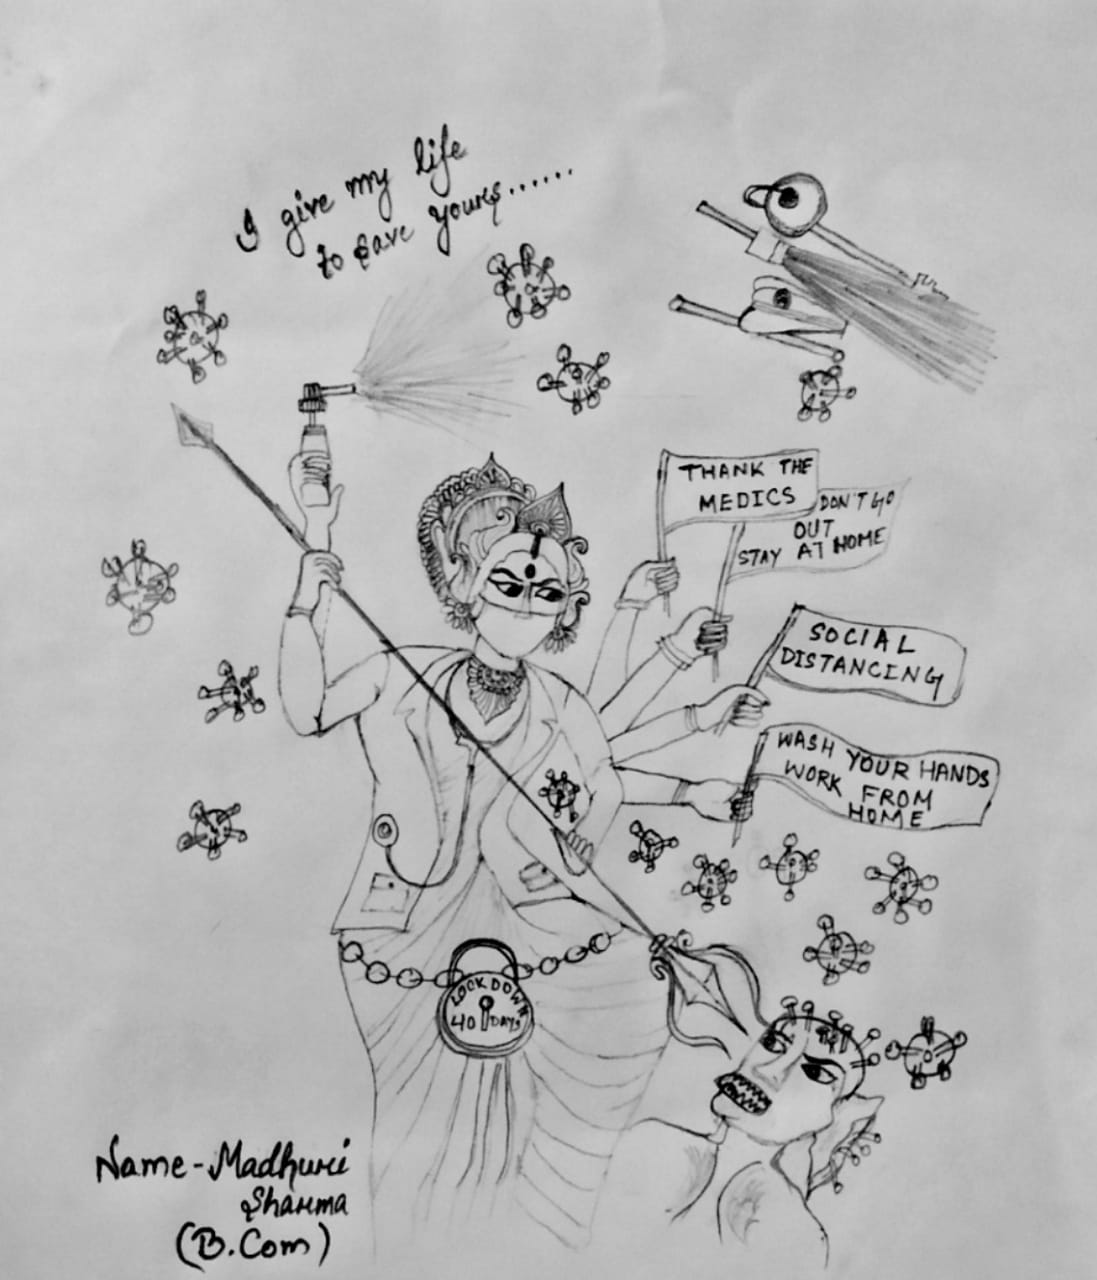 I give my life
to save yours......
THANK THE
MEDICS
DON'T GO
OUT
STAY AT HOME
SOCIAL
DISTANCING
WASH YOUR HANDS
WORK FROM
HOME
LOCKDOWN
40 DAYS
Name - Madhuri
Sharma
(B.Com)